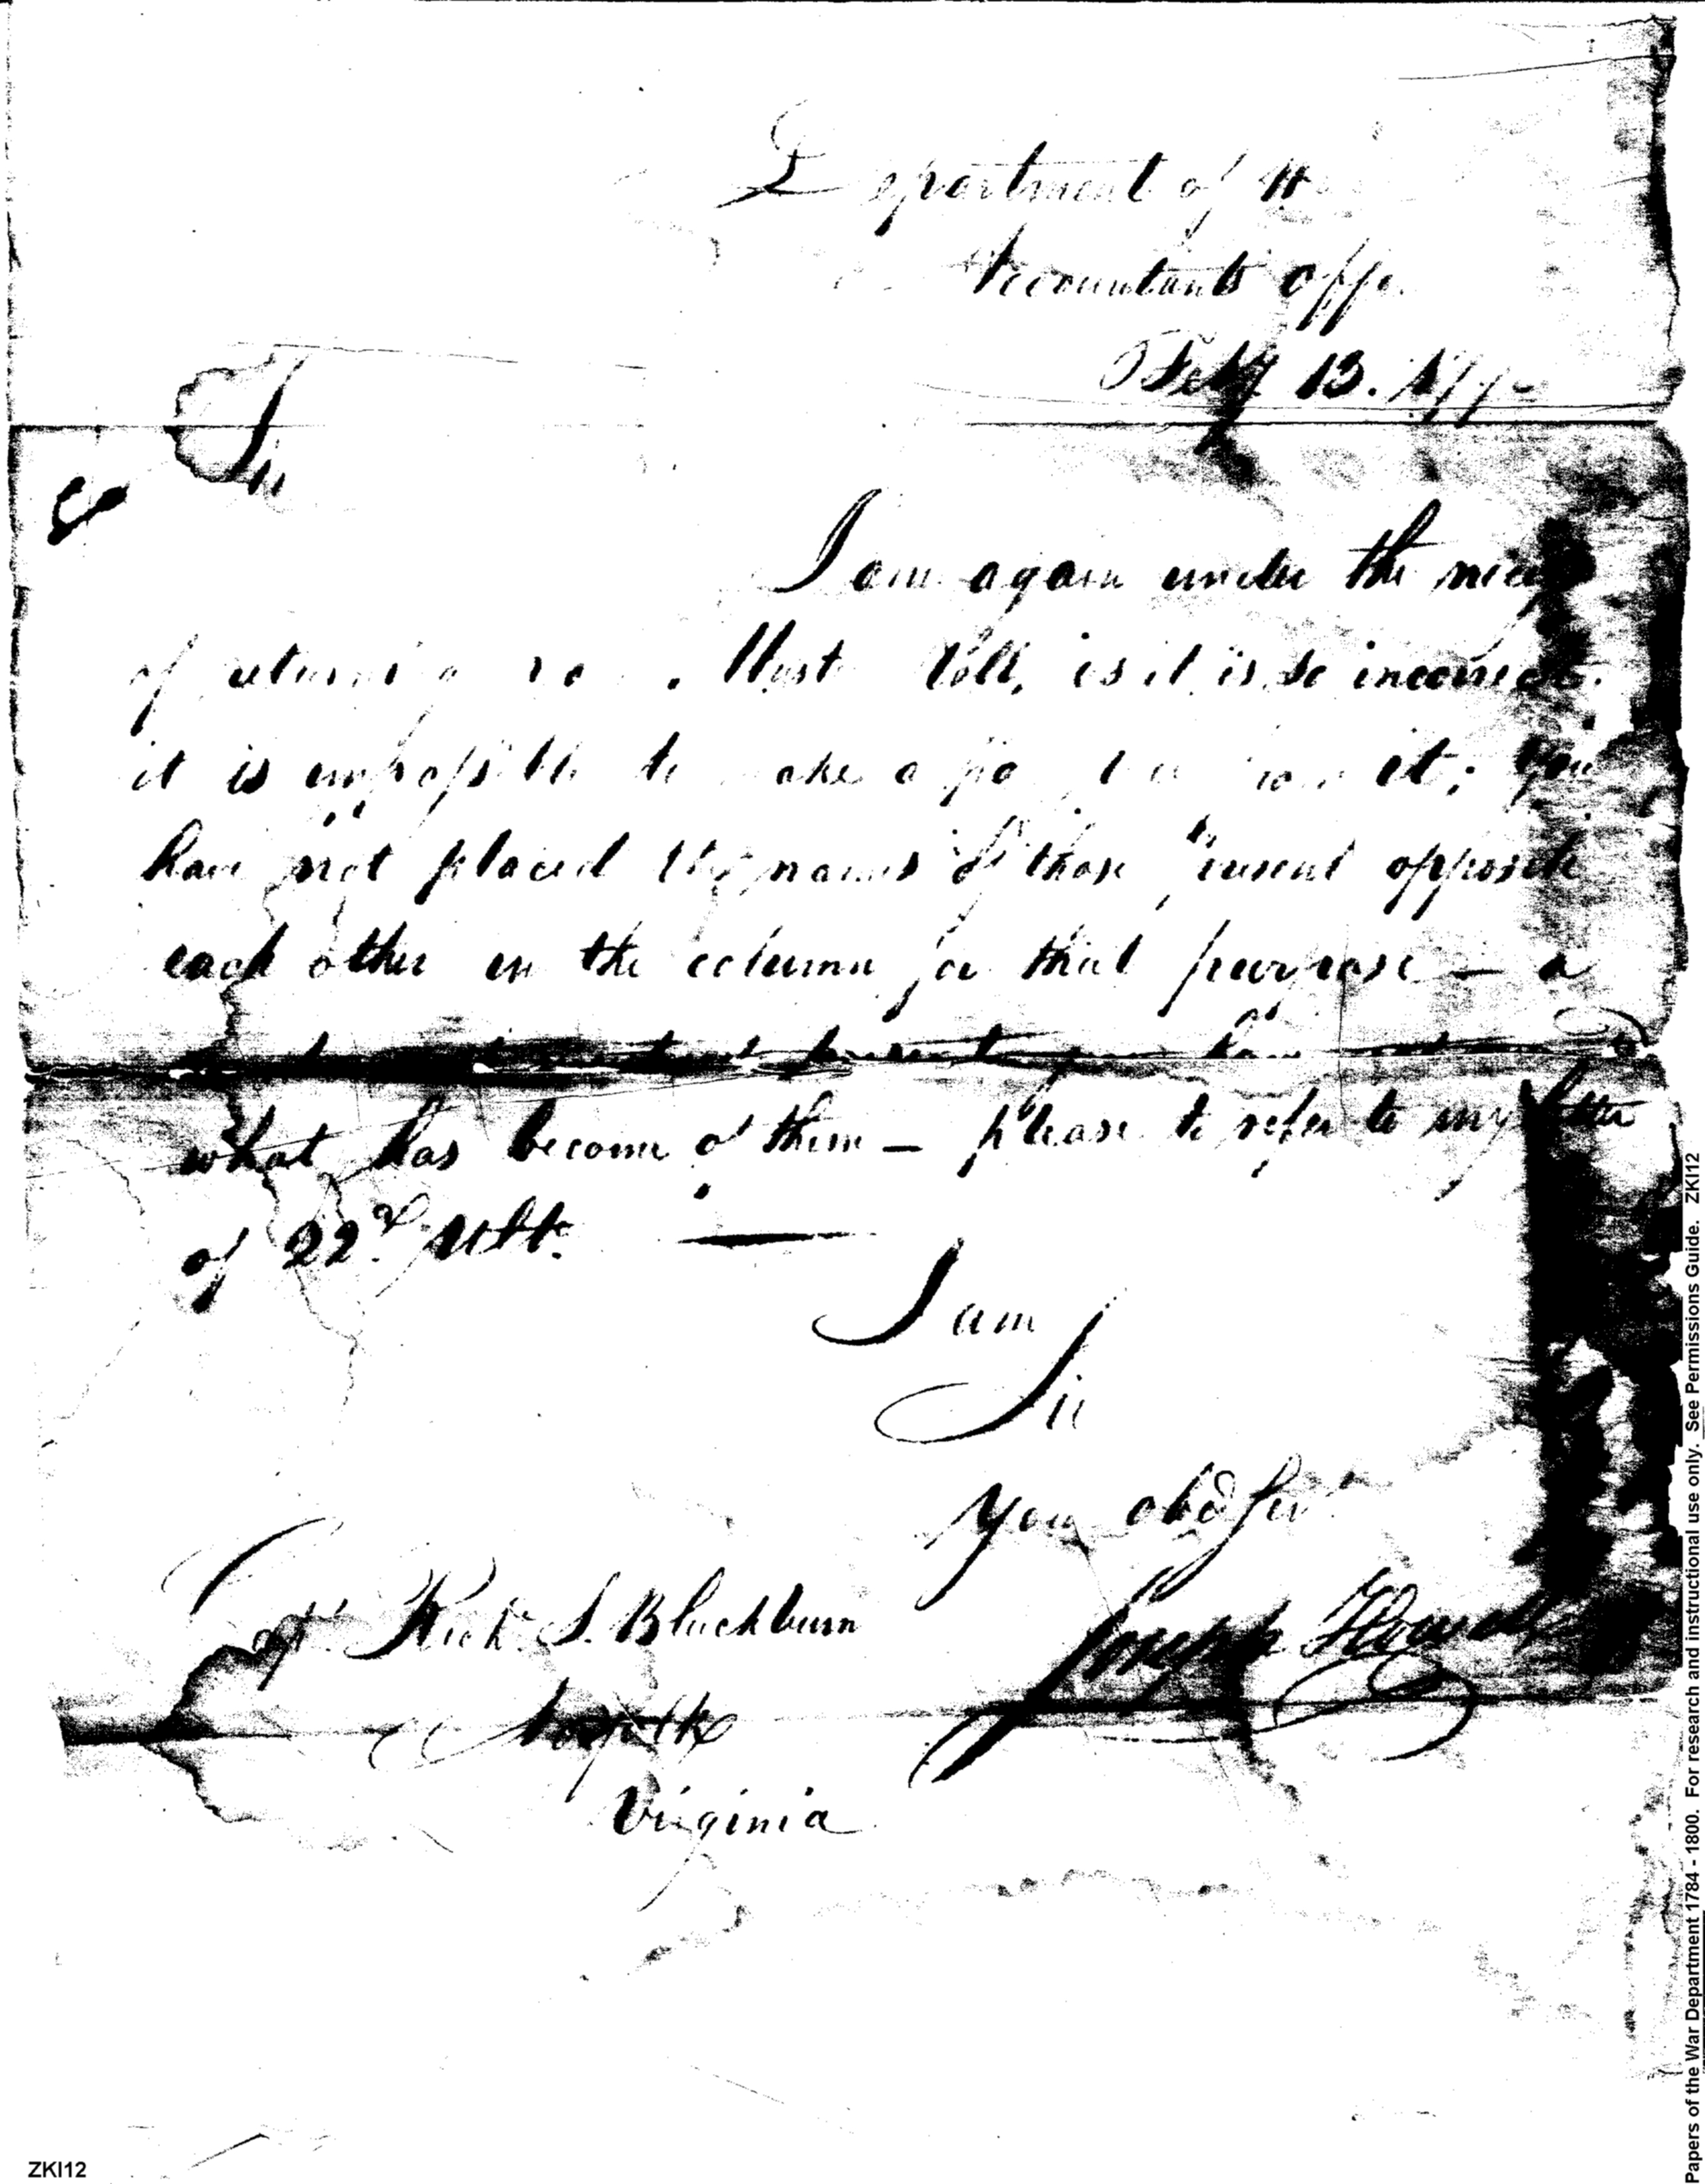 Department of
Accountants Offi
Feby 13. 179
Sir
I am again under the
of returning Muster Roll, as it is so incorrect
it is impossible to make a from it; you
have not placed the names of those present opposite
each other in the column for that purpose — a
present you have
what has become of them — please to refer to my letter
of 22d Ulto.
I am
Sir
Your obd Servt
Joseph Howell
Capt. Richd. S. Blackburn
Norfolk
Virginia
ZKI12
Papers of the War Department 1784 - 1800. For research and instructional use only. See Permissions Guide. ZKI12